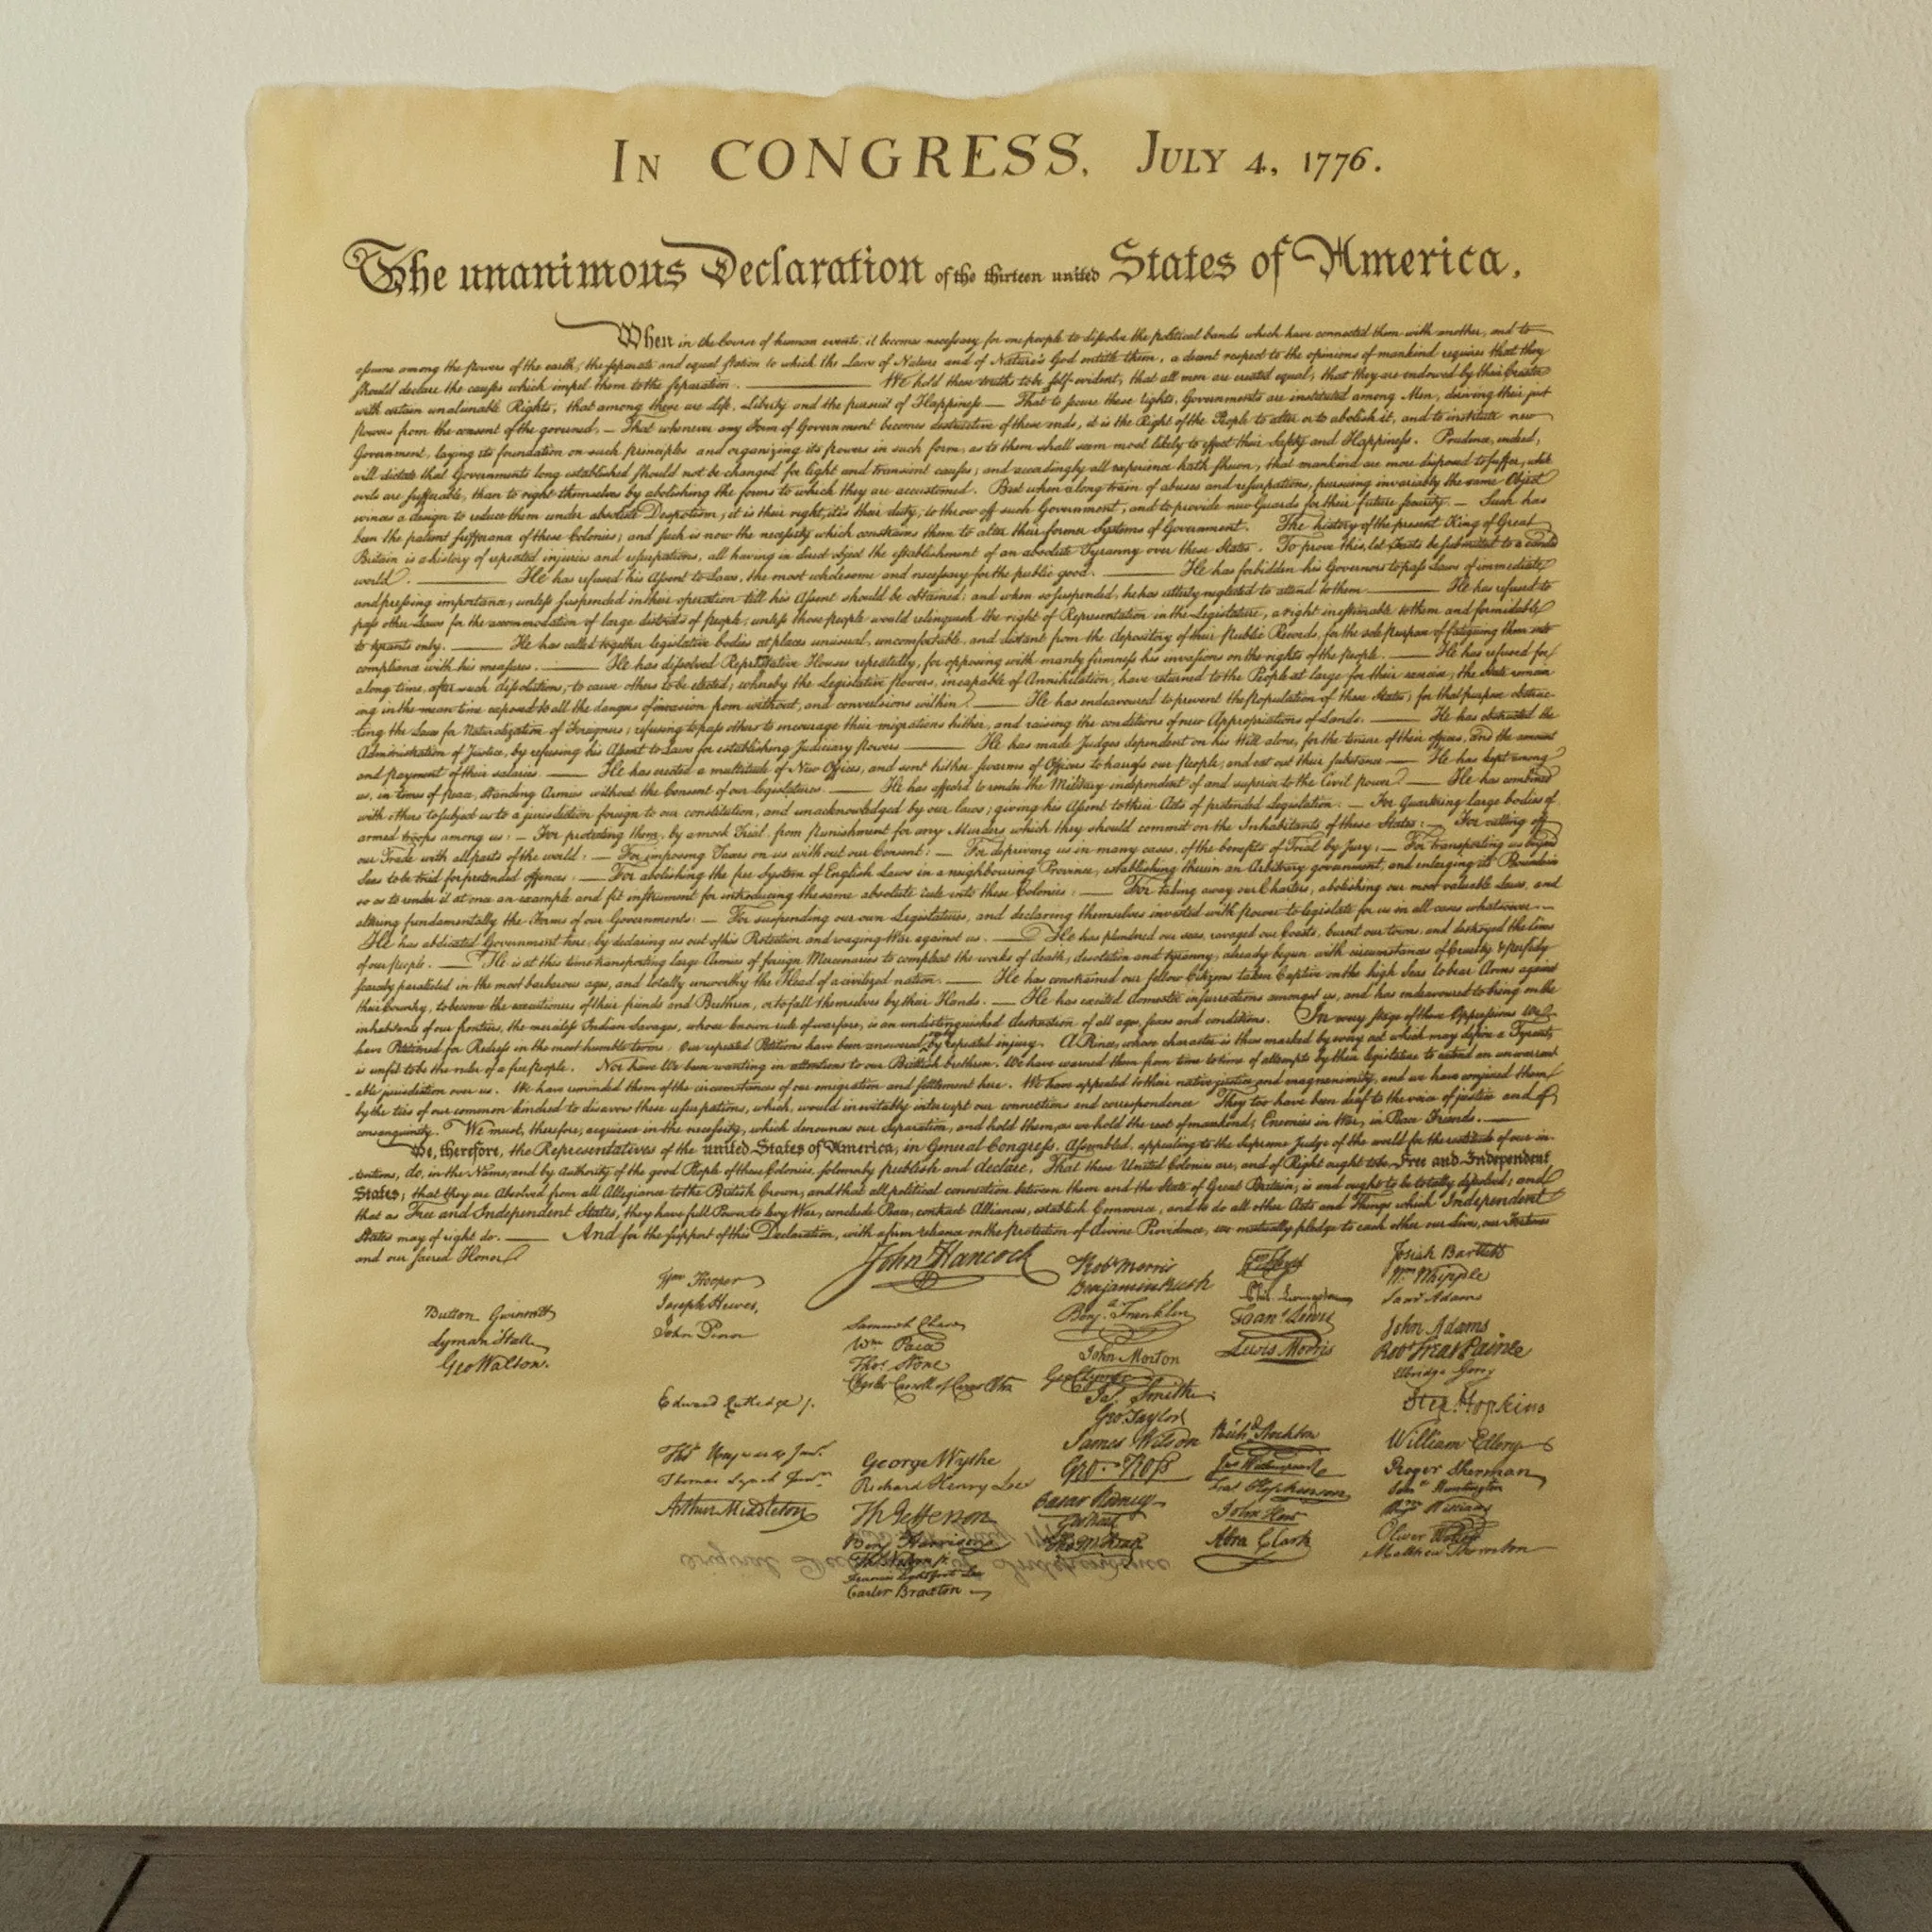 In CONGRESS, July 4, 1776.
The unanimous Declaration of the thirteen united States of America,
When in the Course of human events, it becomes necessary for one people to dissolve the political bands which have connected them with another, and to
assume among the powers of the earth, the separate and equal station to which the Laws of Nature and of Nature's God entitle them, a decent respect to the opinions of mankind requires that they
should declare the causes which impel them to the separation. ——— We hold these truths to be self-evident, that all men are created equal, that they are endowed by their Creator
with certain unalienable Rights, that among these are Life, Liberty and the pursuit of Happiness — That to secure these rights, Governments are instituted among Men, deriving their just
powers from the consent of the governed, — That whenever any Form of Government becomes destructive of these ends, it is the Right of the People to alter or to abolish it, and to institute new
Government, laying its foundation on such principles and organizing its powers in such form, as to them shall seem most likely to effect their Safety and Happiness. Prudence, indeed,
will dictate that Governments long established should not be changed for light and transient causes; and accordingly all experience hath shewn, that mankind are more disposed to suffer, while
evils are sufferable, than to right themselves by abolishing the forms to which they are accustomed. But when a long train of abuses and usurpations, pursuing invariably the same Object
evinces a design to reduce them under absolute Despotism, it is their right, it is their duty, to throw off such Government, and to provide new Guards for their future security. — Such has
been the patient sufferance of these Colonies; and such is now the necessity which constrains them to alter their former Systems of Government. The history of the present King of Great
Britain is a history of repeated injuries and usurpations, all having in direct object the establishment of an absolute Tyranny over these States. To prove this, let Facts be submitted to a candid
world. ——— He has refused his Assent to Laws, the most wholesome and necessary for the public good. ——— He has forbidden his Governors to pass Laws of immediate
and pressing importance, unless suspended in their operation till his Assent should be obtained; and when so suspended, he has utterly neglected to attend to them. ——— He has refused to
pass other Laws for the accommodation of large districts of people, unless those people would relinquish the right of Representation in the Legislature, a right inestimable to them and formidable
to tyrants only. ——— He has called together legislative bodies at places unusual, uncomfortable, and distant from the depository of their Public Records, for the sole purpose of fatiguing them into
compliance with his measures. ——— He has dissolved Representative Houses repeatedly, for opposing with manly firmness his invasions on the rights of the people. ——— He has refused for
a long time, after such dissolutions, to cause others to be elected; whereby the Legislative powers, incapable of Annihilation, have returned to the People at large for their exercise; the State remain
ing in the mean time exposed to all the dangers of invasion from without, and convulsions within. ——— He has endeavoured to prevent the population of these States; for that purpose obstruc-
ting the Laws for Naturalization of Foreigners; refusing to pass others to encourage their migrations hither, and raising the conditions of new Appropriations of Lands. ——— He has obstructed the
Administration of Justice, by refusing his Assent to Laws for establishing Judiciary powers ——— He has made Judges dependent on his Will alone, for the tenure of their offices, and the amount
and payment of their salaries. ——— He has erected a multitude of New Offices, and sent hither swarms of Officers to harrass our people, and eat out their substance ——— He has kept among
us, in times of peace, Standing Armies without the Consent of our legislatures. ——— He has affected to render the Military independent of and superior to the Civil power. ——— He has combined
with others to subject us to a jurisdiction foreign to our constitution, and unacknowledged by our laws; giving his Assent to their Acts of pretended Legislation. — For Quartering large bodies of
armed troops among us: — For protecting them, by a mock Trial, from punishment for any Murders which they should commit on the Inhabitants of these States: — For cutting off
our Trade with all parts of the world: — For imposing Taxes on us without our Consent: — For depriving us in many cases, of the benefits of Trial by Jury: — For transporting us beyond
Seas to be tried for pretended offences: — For abolishing the free System of English Laws in a neighbouring Province, establishing therein an Arbitrary government, and enlarging its Boundaries
so as to render it at once an example and fit instrument for introducing the same absolute rule into these Colonies: — For taking away our Charters, abolishing our most valuable Laws, and
altering fundamentally the Forms of our Governments: — For suspending our own Legislatures, and declaring themselves invested with power to legislate for us in all cases whatsoever. —
He has abdicated Government here, by declaring us out of his Protection and waging War against us. — He has plundered our seas, ravaged our Coasts, burnt our towns, and destroyed the lives
of our people. — He is at this time transporting large Armies of foreign Mercenaries to compleat the works of death, desolation and tyranny, already begun with circumstances of Cruelty & perfidy
scarcely paralleled in the most barbarous ages, and totally unworthy the Head of a civilized nation. — He has constrained our fellow Citizens taken Captive on the high Seas to bear Arms against
their Country, to become the executioners of their friends and Brethren, or to fall themselves by their Hands. — He has excited domestic insurrections amongst us, and has endeavoured to bring on the
inhabitants of our frontiers, the merciless Indian Savages, whose known rule of warfare, is an undistinguished destruction of all ages, sexes and conditions. In every stage of these Oppressions We
have Petitioned for Redress in the most humble terms: Our repeated Petitions have been answered only by repeated injury. A Prince, whose character is thus marked by every act which may define a Tyrant,
is unfit to be the ruler of a free people. Nor have We been wanting in attentions to our Brittish brethren. We have warned them from time to time of attempts by their legislature to extend an unwarrant
able jurisdiction over us. We have reminded them of the circumstances of our emigration and settlement here. We have appealed to their native justice and magnanimity, and we have conjured them
by the ties of our common kindred to disavow these usurpations, which, would inevitably interrupt our connections and correspondence They too have been deaf to the voice of justice and of
consanguinity. We must, therefore, acquiesce in the necessity, which denounces our Separation, and hold them, as we hold the rest of mankind, Enemies in War, in Peace Friends. —
We, therefore, the Representatives of the united States of America, in General Congress, Assembled, appealing to the Supreme Judge of the world for the rectitude of our in-
tentions, do, in the Name, and by Authority of the good People of these Colonies, solemnly publish and declare, That these United Colonies are, and of Right ought to be Free and Independent
States; that they are Absolved from all Allegiance to the British Crown, and that all political connection between them and the State of Great Britain, is and ought to be totally dissolved; and
that as Free and Independent States, they have full Power to levy War, conclude Peace, contract Alliances, establish Commerce, and to do all other Acts and Things which Independent
States may of right do. ——— And for the support of this Declaration, with a firm reliance on the protection of divine Providence, we mutually pledge to each other our Lives, our Fortunes
and our sacred Honor.
Button Gwinnett
Lyman Hall
Geo Walton.
Wm Hooper
Joseph Hewes,
John Penn
Edward Rutledge /.
Thos Heyward Junr.
Thomas Lynch Junr.
Arthur Middleton
John Hancock
Samuel Chase
Wm. Paca
Thos. Stone
Charles Carroll of Carrollton
George Wythe
Richard Henry Lee
Th Jefferson
Benj Harrison
Thos Nelson jr.
Francis Lightfoot Lee
Carter Braxton
Robt Morris
Benjamin Rush
Benja. Franklin
John Morton
Geo Clymer
Jas. Smith.
Geo. Taylor
James Wilson
Geo. Ross
Caesar Rodney
Geo Read
Tho M:Kean
Phil. Livingston
Frans. Lewis
Lewis Morris
Richd. Stockton
Jno Witherspoon
Fras. Hopkinson
John Hart
Abra Clark
Josiah Bartlett
Wm. Whipple
Saml Adams
John Adams
Robt Treat Paine
Elbridge Gerry
Step. Hopkins
William Ellery
Roger Sherman
Saml Huntington
Wm. Williams
Oliver Wolcott
Matthew Thornton
Original Declaration of Independence